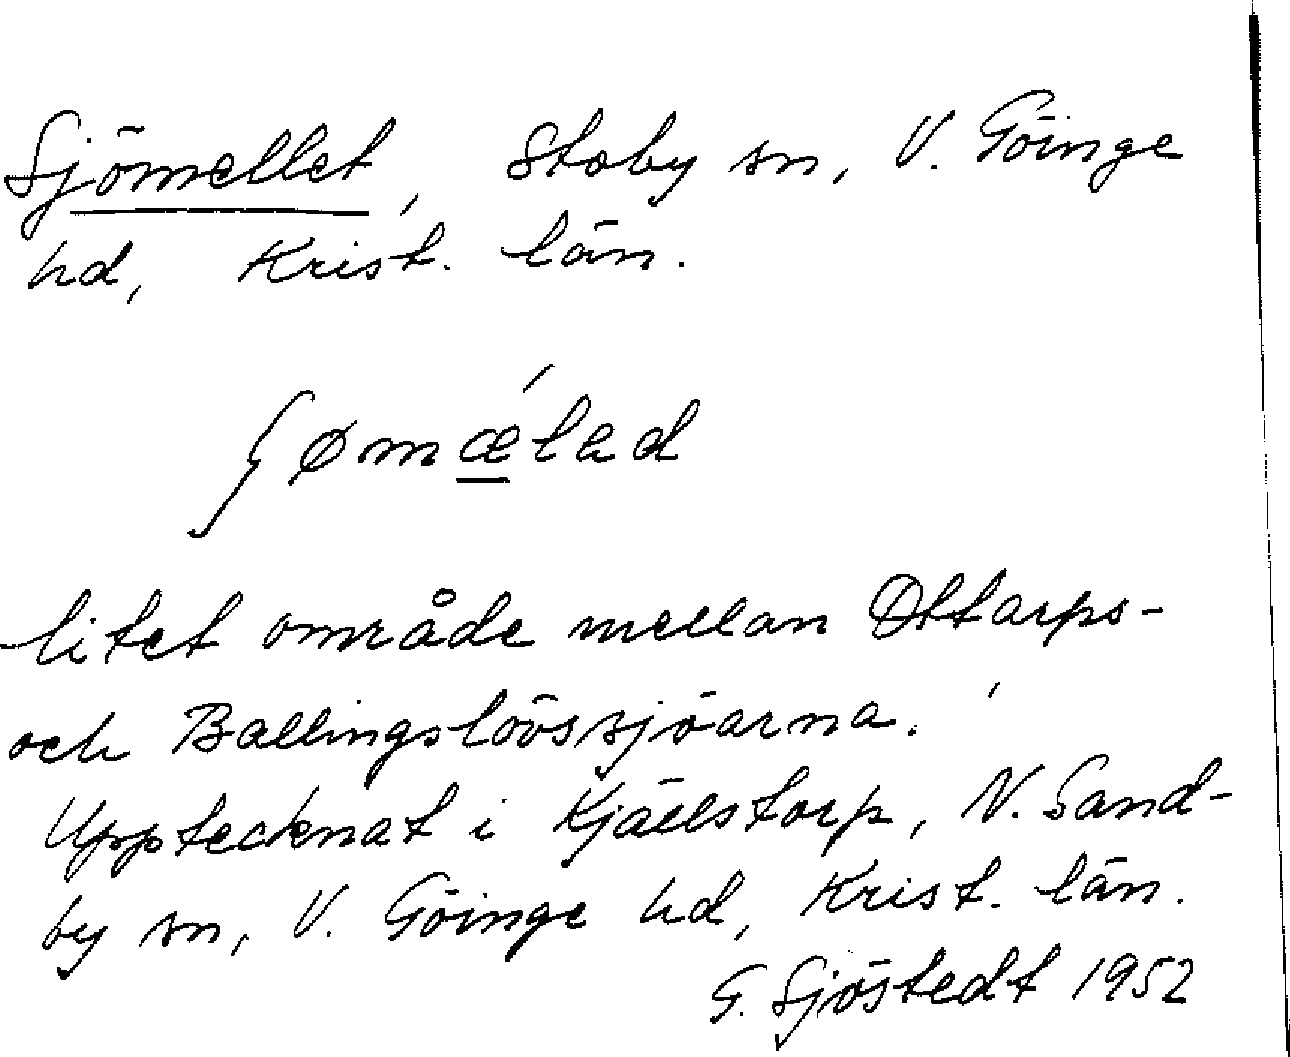 Sjömellet, Stoby sn, V. Göinge
hd, Krist. län.
ʃømǽlad
litet område mellan Ottarps-
och Ballingslövssjöarna.
Upptecknat i Kjällstorp, N. Sand-
by sn, V. Göinge hd, Krist. län.
G. Sjöstedt 1952